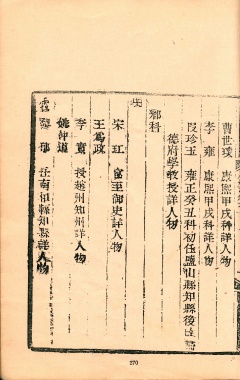 曹世璞 康熙甲戌科詳人物
李雍 康熙甲戌科詳人物
段珍玉 雍正癸丑科初任鹽山縣知縣後
德府學教授詳人物
鄉科
宋
宋江 官至御史詳人物
王為政
李賓 授趙州知州詳人物
姚仲道
任南和縣知縣詳人物
270